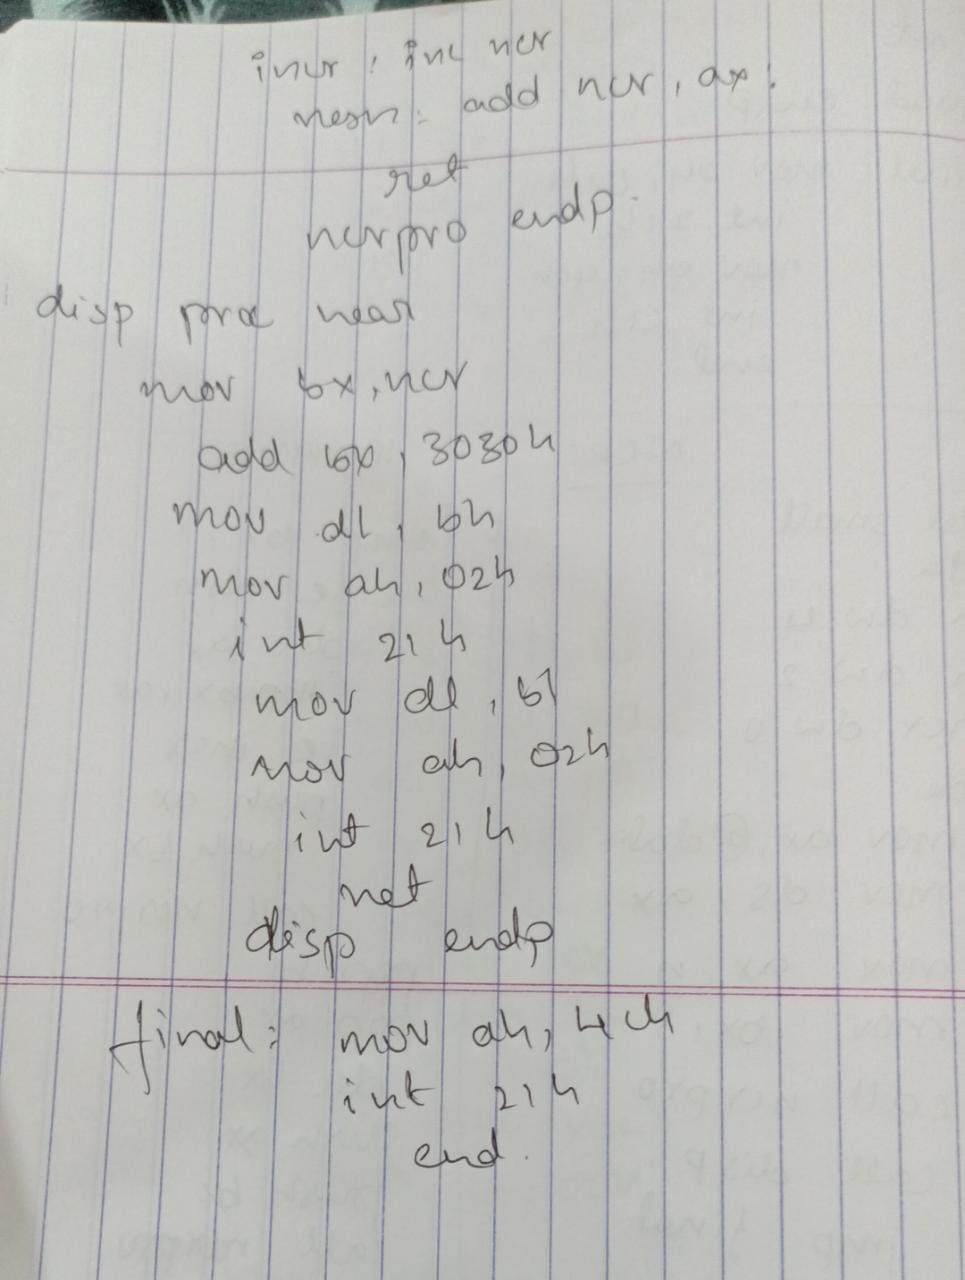 incr : inc ncr
ncrn: add ncr, ax.
ret
ncrpro endp.
disp proc near
mov bx, ncr
add bx, 3030h
mov dl, bh
mov ah, 02h
int 21h
mov dl, bl
mov ah, 02h
int 21h
ret
disp endp
final: mov ah, 4ch
int 21h
end.